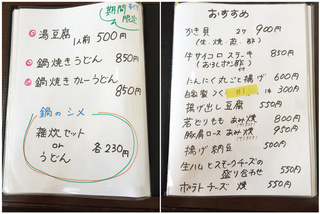 期間限定
湯豆腐 1人前 500円
鍋焼きうどん 850円
鍋焼きカレーうどん
850円
鍋のシメ
雑炊セット
or
うどん
各230円
おすすめ
かき貝 2ケ 900円
(生・焼・蒸・酢)
牛サイコロステーキ 850円
(おろしポン酢)
にんにく丸ごと揚げ 600円
自家製つく 300円
揚げ出し豆腐 550円
若どりもも あみ焼 800円
豚肩ロース あみ焼 950円
揚げ納豆 500円
生ハムとスモークチーズの
盛り合わせ 550円
ポテトチーズ焼 550円